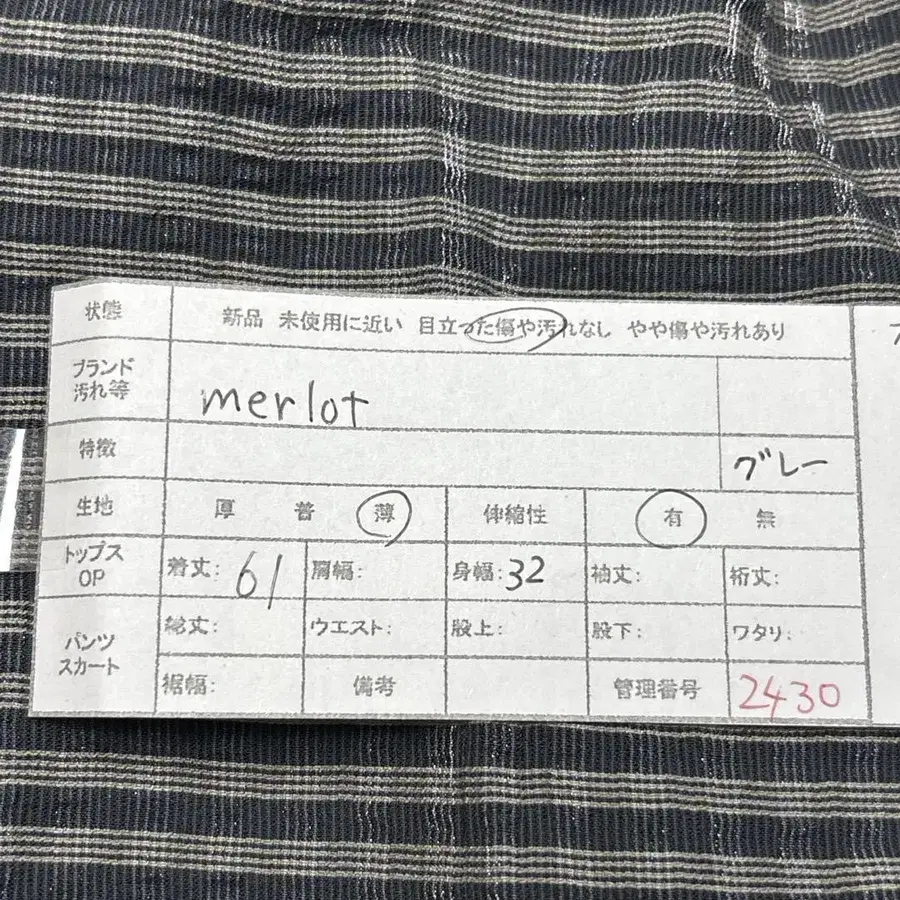 状態 新品 未使用に近い 目立った傷や汚れなし やや傷や汚れあり
ブランド
汚れ等 merlot
特徴 グレー
生地 厚 普 薄 伸縮性 有 無
トップス
OP 着丈: 61 肩幅: 身幅: 32 袖丈: 裄丈:
パンツ
スカート 総丈: ウエスト: 股上: 股下: ワタリ:
裾幅: 備考 管理番号 2430